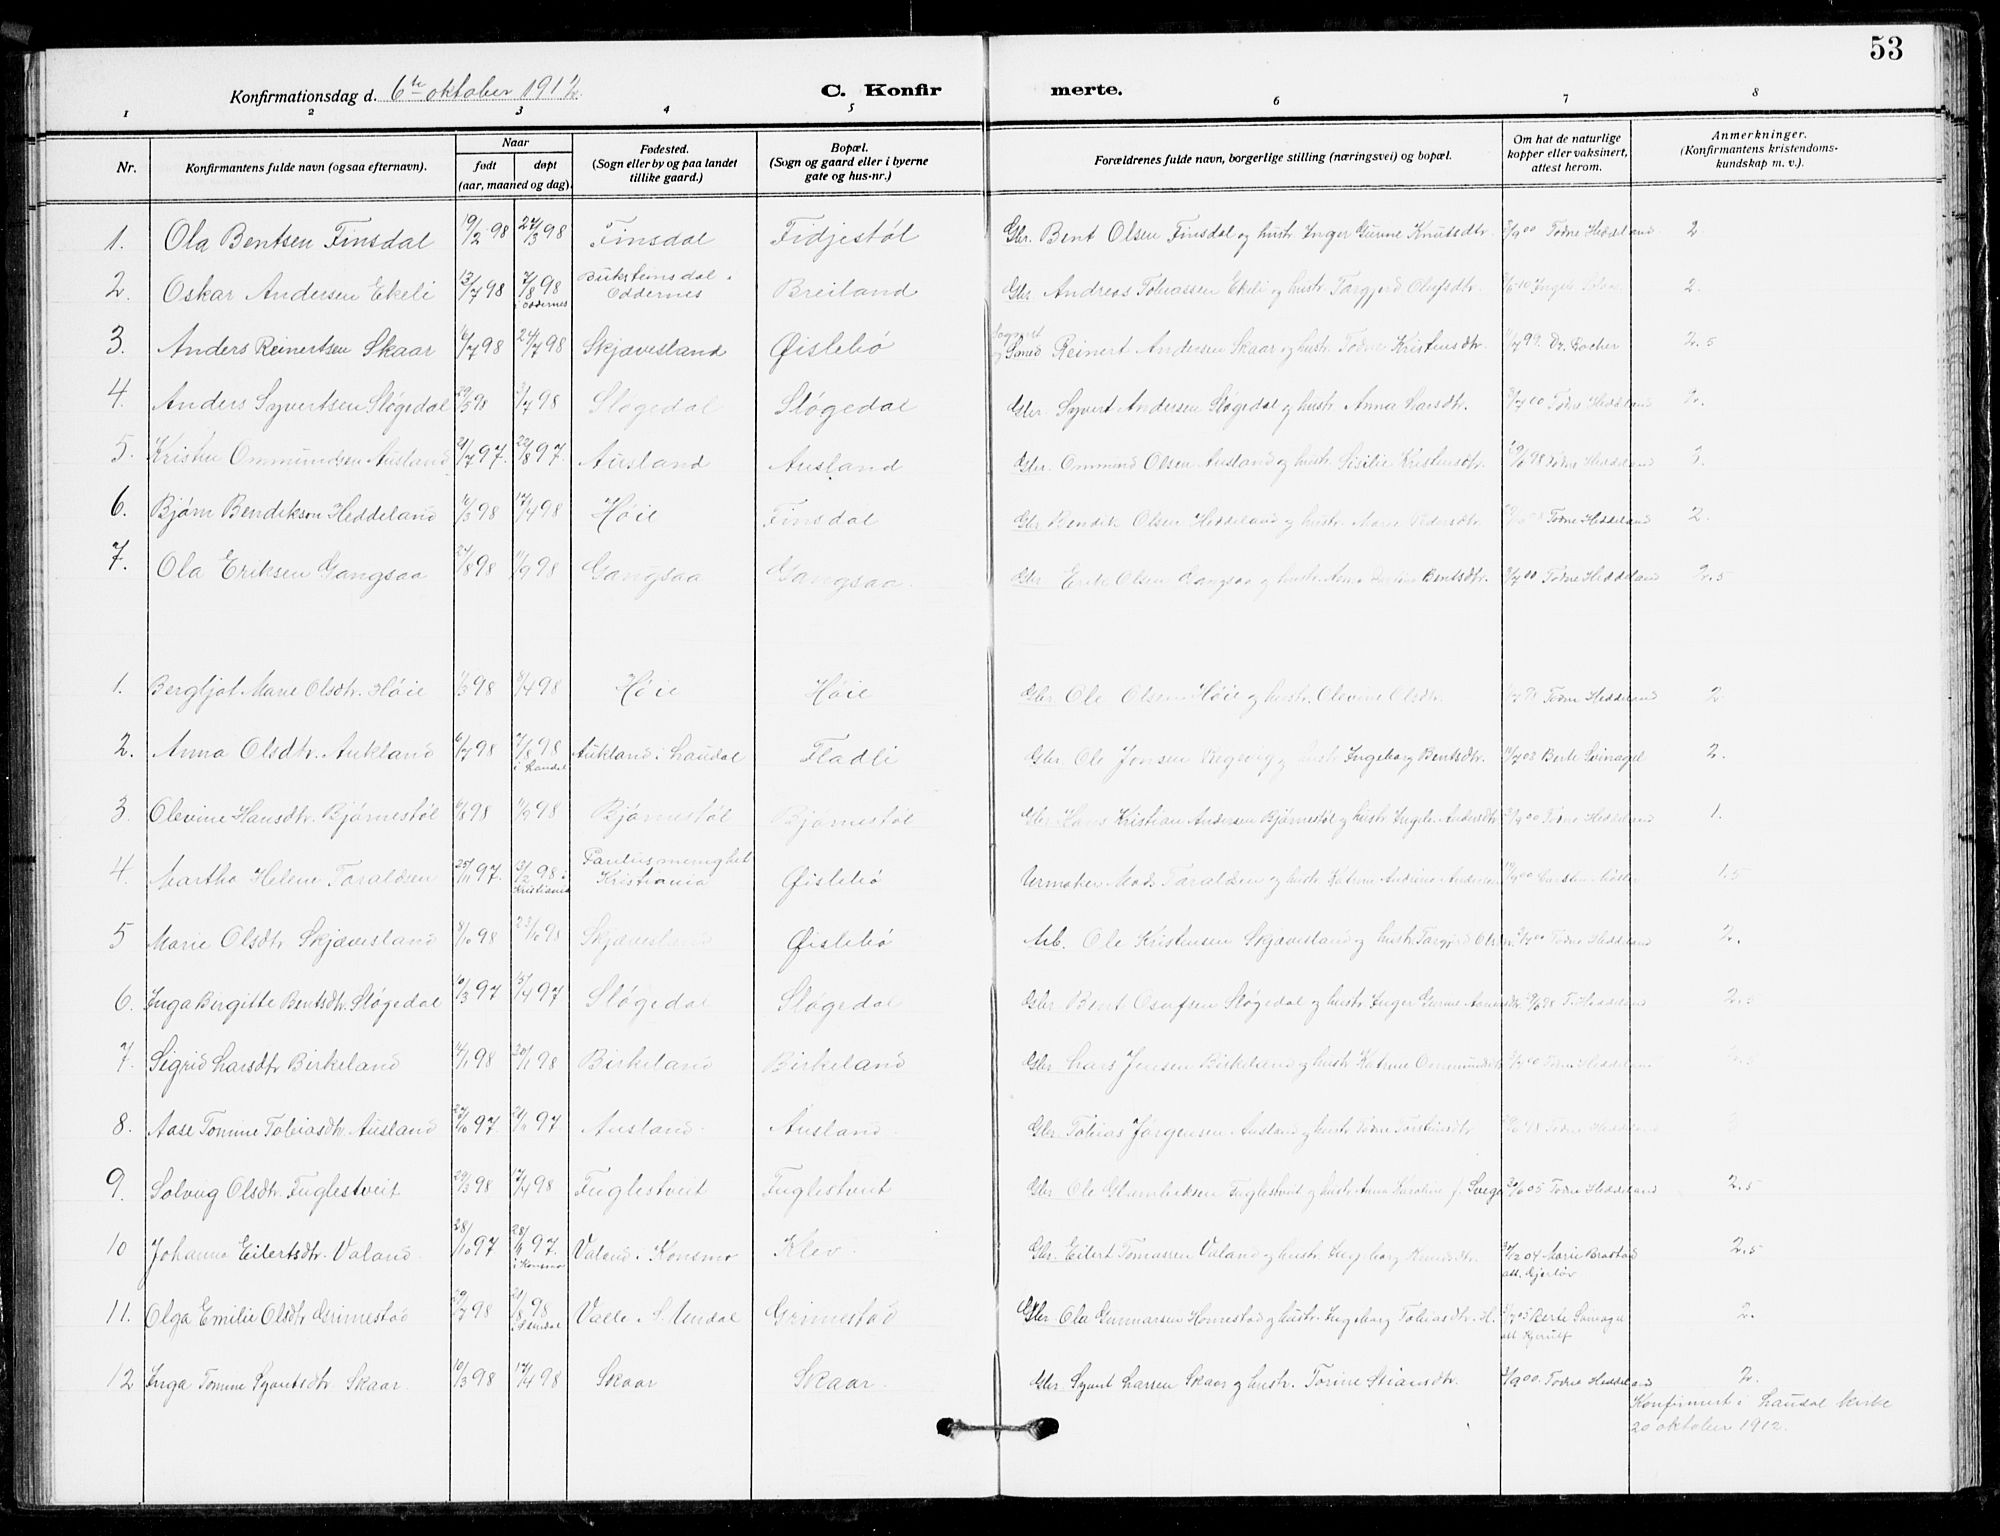 53
Konfirmationsdag d. 6te oktober 1912.
C. Konfirmerte.
1 2 3 4 5 6 7 8
Nr. Konfirmantens fulde navn (ogsaa efternavn). Naar født døpt (aar, maaned og dag). Fødested. (Sogn eller by og paa landet tillike gaard.) Bopæl. (Sogn og gaard eller i byerne gate og hus-nr.) Forældrenes fulde navn, borgerlige stilling (næringsvei) og bopæl. Om hat de naturlige kopper eller vaksinert, attest herom. Anmerkninger. (Konfirmantens kristendomskundskap m. v.).
1. Ola Bentsen Finsdal 19/2 98 27/3 98 Finsdal Fidjestøl Gbr. Bent Olsen Finsdal og hustr. Inger Gurine Knutsdtr. Todne Heddeland 2
2. Oskar Andersen Ekeli 13/7 98 7/8 98 i Oddernes Oddernes Breiland Gbr. Andreas Tobiassen Ekeli og hustr. Targjerd Olufsdtr. 2.
3. Anders Reinertsen Skaar 6/7 98 24/7 98 Skjævesland Øislebø og Smed Reinert Andersen Skaar og hustr. Todne Kristensdtr. 2.5
4. Anders Syvertsen Sløgedal 29/5 98 3/7 98 Sløgedal Sløgedal Gbr. Syvert Andersen Sløgedal og hustr. Anna Larsdtr. Todne Heddeland 2.
5. Kristen Ommundsen Ausland 21/7 97. 22/8 97. Ausland Ausland Gbr. Ommund Olsen Ausland og hustr. Sisilie Kristensdtr. Todne Heddeland 3.
6. Bjørn Bendiksen Heddeland 16/3 98 17/4 98 Høie Finsdal Gbr. Bendik Olsen Heddeland og hustr. Marie Pedersdtr. Todne Heddeland 2.
7. Ola Eriksen Gangsaa 27/8 98 11/9 98 Gangsaa Gangsaa. Gbr. Erik Olsen Gangsaa og hustr. Anna Bentsdtr. Todne Heddeland 2.5
1. Bergljot Marie Olsdtr. Høie 1/3 98 8/4 98 Høie Høie Gbr. Ole Olsen Høie og hustr. Olevine Olsdtr. Todne Heddeland 2
2. Anna Olsdtr. Aukland 6/7 98 7/8 98 i Laudal Aukland i Laudal Fladli Gbr. Ole Jonsen og hustr. Ingeborg Bentsdtr. 11/7 08 Berte Svinagel 2.
3. Olevine Hansdtr. Bjørnestøl 6/8 98 11/9 98 Bjørnestøl Bjørnestøl Gbr. Hans Kristian Andersen Bjørnestøl og hustr. Ingeb. Andersdtr. Todne Heddeland 1.
4. Martha Helene Taraldsen 25/11 97. 13/2 98 i Kristiania Paulus menighet Kristiania Øislebø Urmaker Mads Taraldsen og hustr. Katrine Andrine Andersen 1.5
5 Marie Olsdtr Skjævesland 8/10 98 23/10 98 Skjævesland Øislebø Arb. Ole Kristensen Skjævesland og hustr. Targjerd Todne Heddeland 2.
6. Inga Birgitte Bentsdtr. Sløgedal 10/3 97 13/4 97 Sløgedal Sløgedal Gbr Bent Osufsen Sløgedal og hustr. Inger Gurine T. Heddeland 2.5
7. Sigrid Larsdtr Birkeland 14/1 98 30/1 98 Birkeland Birkeland Gbr. Lars Jensen Birkeland og hustr. Katrine Ommundsdtr. Todne Heddeland
8. Aase Tomine Tobiasdtr. Ausland 27/10 97. 21/11 97 Ausland. Ausland. Gbr. Tobias Jørgensen Ausland og hustr. Todne Torstensdtr Todne Heddeland
9. Solveig Olsdtr. Fuglestveit 20/3 98 17/4 98 Fuglestveit Fuglestveit Gbr Ole Fuglestveit og hustr. Anna Karoline f. Todne Heddeland 2.5
10 Johanna Eilertsdtr. Valand. 28/10 97 28/11 97. i Konsmo Valand i Konsmo Klev. Gbr. Eilert Tomassen Valand og hustr. Ingeborg Knudsdtr. Marie att. 2.5
11. Olga Emilie Olsdtr Grimestad 29/7 98 21/8 98 i Mandal Valle S. Undal Grimestad Gbr. Ola Gunnarsen Homestad og hustr. Ingeborg Tobiasdtr. H. Berte Svinagel 2.
12 Inga Tomine Syvertsdtr Skaar. 10/3 98 17/4 98 Skaar Skaar. Gbr. Syvert Larsen Skaar og hustr. Torine Stiansdtr. Todne Heddeland 2.
Konfirmert i Laudal kirke
20 oktober 1912.